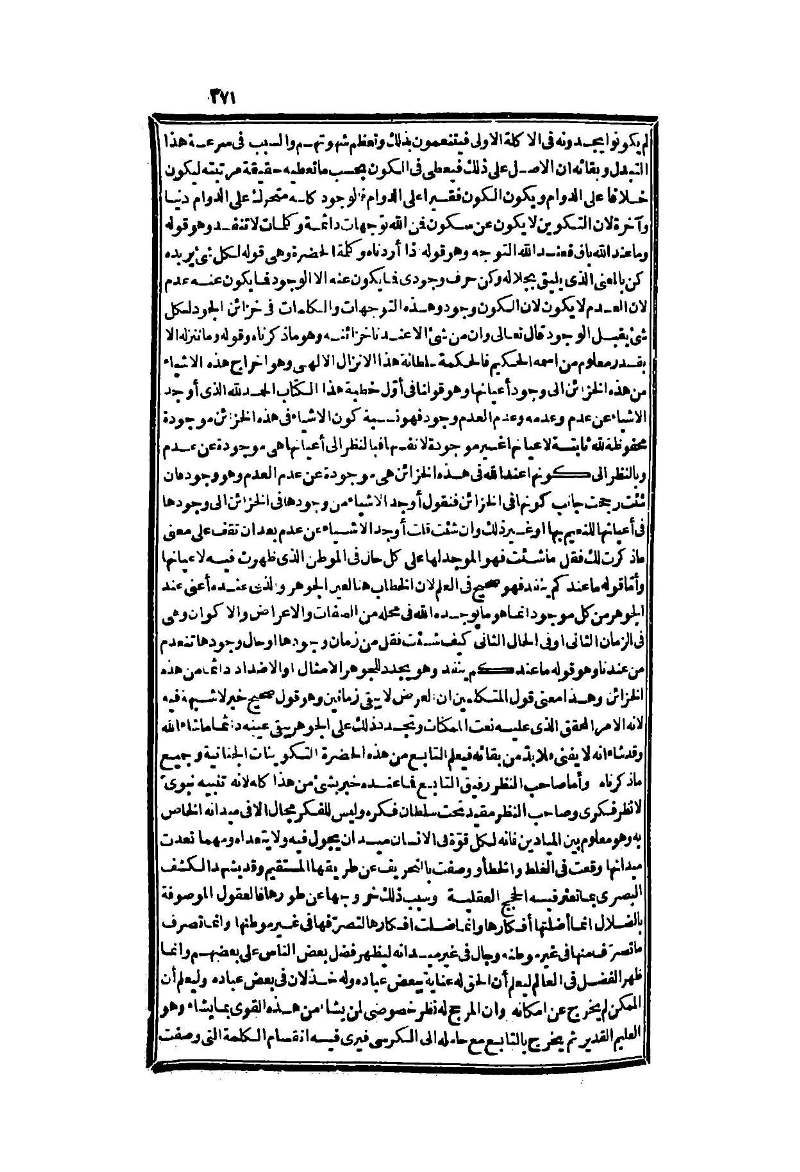 ٣٧١
لم يكونوا يجدونه فى الاكلة الاولى فيتنعمون بذلك وتعظم شهوتهم والسبب فى سرعة هذا
التبدل وبقائه ان الاصل على ذلك فيعطى فى الكون بحسب ما تعطيه حقيقة مرتبته ليكون
خلاقا على الدوام ويكون الكون فقيرا على الدوام فالوجود كله متحرك على الدوام دنيا
وآخرة لان التكوين لا يكون عن سكون فمن الله توجهات دائمة وكلمات لا تنفد وهو قوله
وما عند الله باق فعند الله التوجه وهو قوله اذا أردناه وكلمة الحضرة وهى قوله لكل شئ يريده
كن بالمعنى الذى يليق بجلاله وكن حرف وجودى فلا يكون عنه الا الوجود فلا يكون عنه عدم
لان العدم لا يكون لان الكون وجود وهذه التوجهات والكلمات فى خزائن الجود لكل
شئ يقبل الوجود قال تعالى وان من شئ الا عندنا خزائنه وهو ما ذكرناه وقوله وما ننزله الا
بقدر معلوم من اسمه الحكيم فالحكمة سلطانة هذا الانزال الالهى وهو اخراج هذه الاشياء
من هذه الخزائن الى وجود أعيانها وهو قولنا فى أول خطبة هذا الكتاب الحمد لله الذى أوجد
الاشياء عن عدم وعدمه وعدم العدم وجود فهو نسبة كون الاشياء فى هذه الخزائن موجودة
محفوظة لله ثابتة لاعيانها غير موجودة لانفسها فبالنظر الى أعيانها هى موجودة عن عدم
وبالنظر الى كونها عند الله فى هذه الخزائن هى موجودة عن عدم العدم وهو وجود فان
شئت رجحت جانب كونها فى الخزائن فنقول أوجد الاشياء من وجودها فى الخزائن الى وجودها
فى أعيانها للنعيم بها أو غير ذلك وان شئت قلت أوجد الاشياء عن عدم بعد ان تقف على معنى
ما ذكرت لك فقل ما شئت فهو الموجد لها على كل حال فى الموطن الذى ظهرت فيه لاعيانها
وأما قوله ما عندكم ينفد فهو صحيح فى العلم لان الخطاب هنا لعين الجوهر والذى عنده أعنى عند
الجوهر من كل موجود انما هو ما يوجده الله فى محله من الصفات والاعراض والاكوان وهى
فى الزمان الثانى أو فى الحال الثانى كيف شئت فقل من زمان وجودها أو حال وجودها تنعدم
من عندنا وهو قوله ما عندكم ينفد وهو يجدد للجوهر الامثال أو الاضداد دائما من هذه
الخزائن وهذا معنى قول المتكلمين ان العرض لا يبقى زمانين وهو قول صحيح خبر لا شبهة فيه
لانه الامر المحقق الذى عليه نعت الممكنات وبتجدد ذلك على الجوهر يبقى عينه دائما ما شاء الله
وقد شاء انه لا يفنى فلا بد من بقائه فيعلم التابع من هذه الحضرة التكوينات الجنانية وجميع
ما ذكرناه وأما صاحب النظر رفيق التابع فما عنده خبر بشئ من هذا كله لانه تنبيه نبوى
لا نظر فكرى وصاحب النظر مقيد تحت سلطان فكره وليس للفكر مجال الا فى ميدانه الخاص
به وهو معلوم بين الميادين فانه لكل قوة فى الانسان ميدان يجول فيه ولا يتعداه ومهما تعدت
ميدانها وقعت فى الغلط والخطأ ووصفت بالتحريف عن طريقها المستقيم وقد يشهد الكشف
البصرى بما تعثر فيه الحجج العقلية وسبب ذلك خروجها عن طورها فالعقول الموصوفة
بالضلال انما أضلتها أفكارها وانما ضلت افكارها لتصرفها فى غير موطنها وانما تصرف
ما تصرف منها فى غير موطنه وجال فى غير ميدانه ليظهر فضل بعض الناس على بعضهم وانما
ظهر الفضل فى العالم ليعلم أن الحق له عناية ببعض عباده وله خذلان فى بعض عباده وليعلم أن
الممكن لم يخرج عن امكانه وان المرجح له نظر خصوصى لمن يشاء من هذه القوى بما يشاء وهو
العليم القدير ثم يخرج بالتابع مع حامله الى الكرسى فيرى فيه انقسام الكلمة التى وصفت